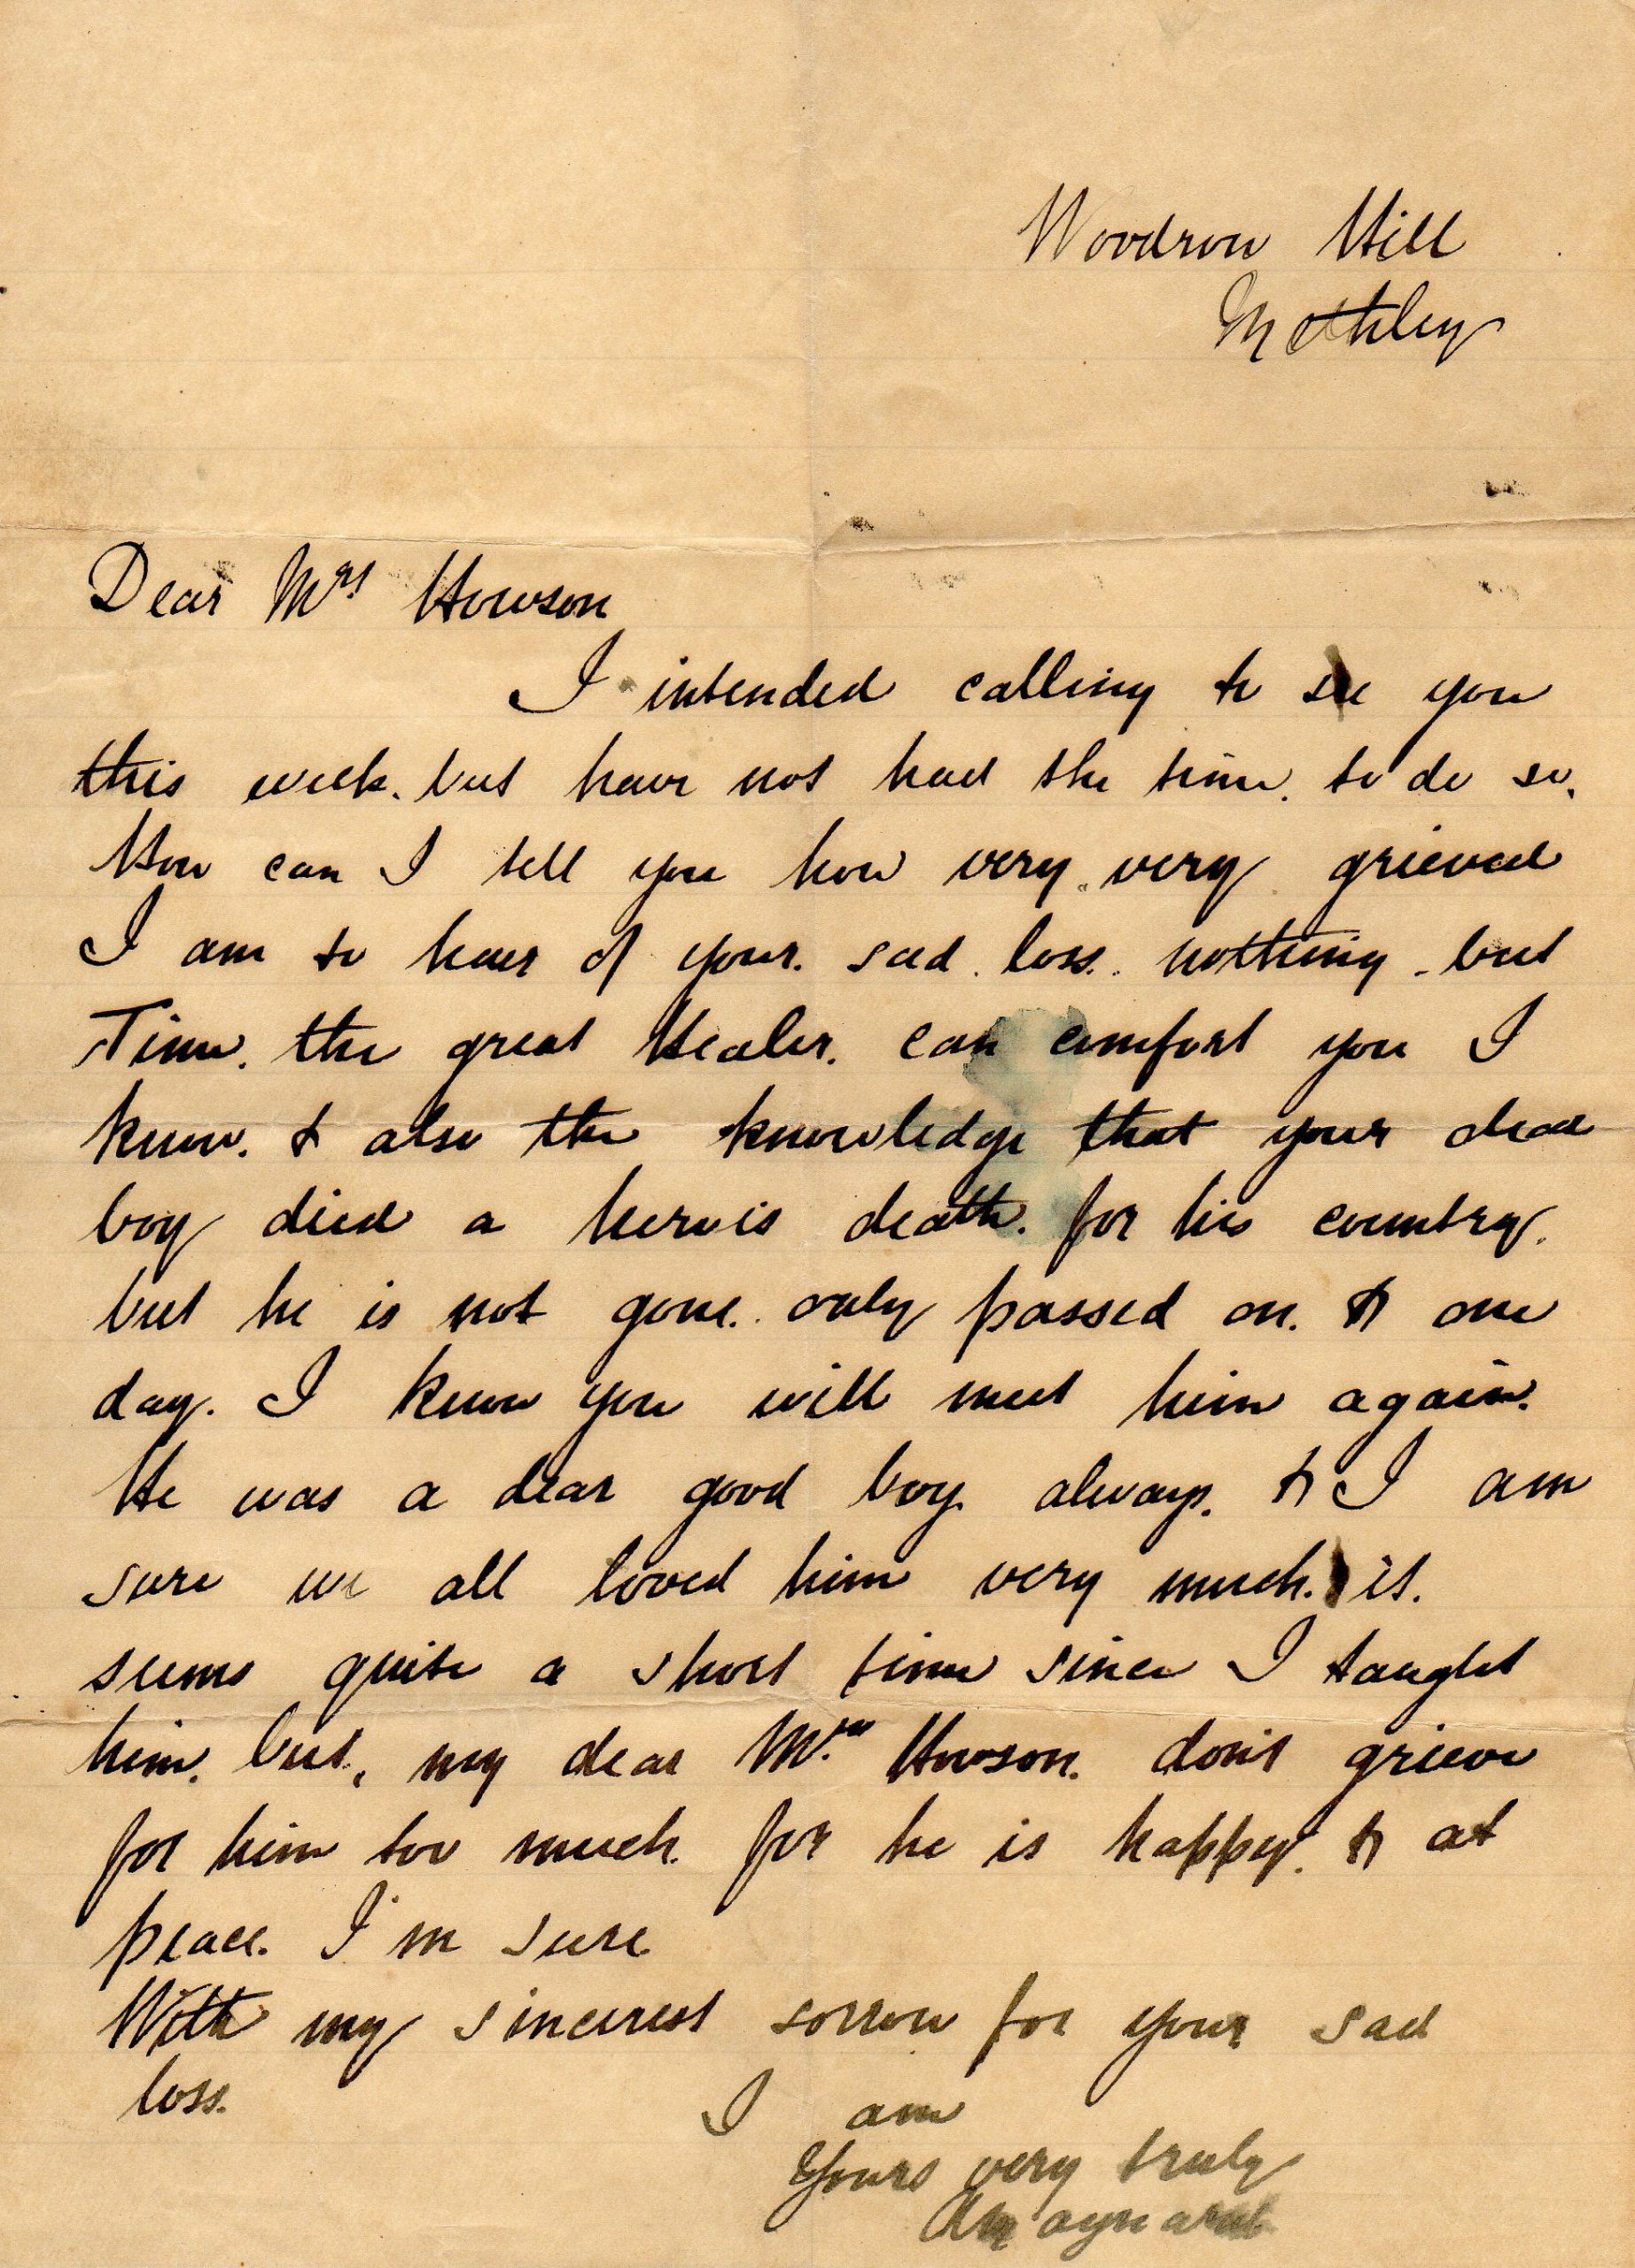 Woodrow Hill
Methley
Dear Mrs Howson
I intended calling to see you
this week. but have not had the time. to do so.
How can I tell you how very very grieved
I am to hear of your. sad loss. nothing but
Time. the great Healer. can comfort you I
know. & also the knowledge that your dear
boy died a herois death. for his country.
but he is not gone. only passed on. & one
day. I know you will meet him again.
He was a dear good boy always. & I am
sure we all loved him very much. it.
seems quite a short time since I taught
him. but, my dear Mrs Howson. don't grieve
for him too much. for he is happy. & at
peace. I'm sure
With my sincerest sorrow for your sad
loss.
I am
Yours very truly